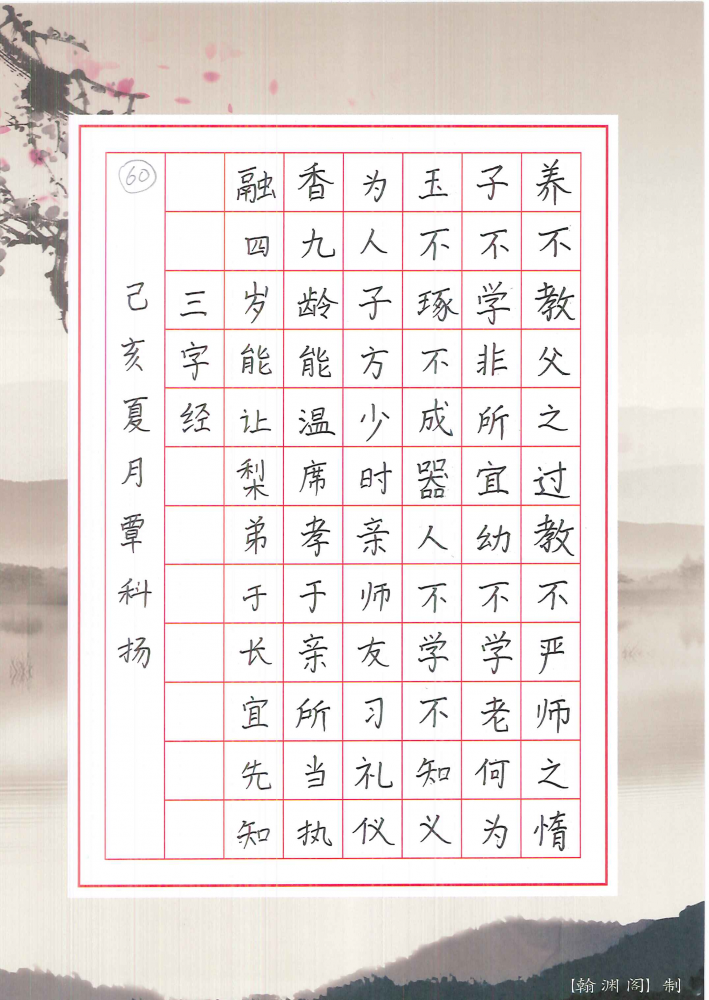 养不教父之过教不严师之惰
子不学非所宜幼不学老何为
玉不琢不成器人不学不知义
为人子方少时亲师友习礼仪
香九龄能温席孝于亲所当执
融四岁能让梨弟于长宜先知
三字经
己亥夏月覃科扬
60
【翰渊阁】制